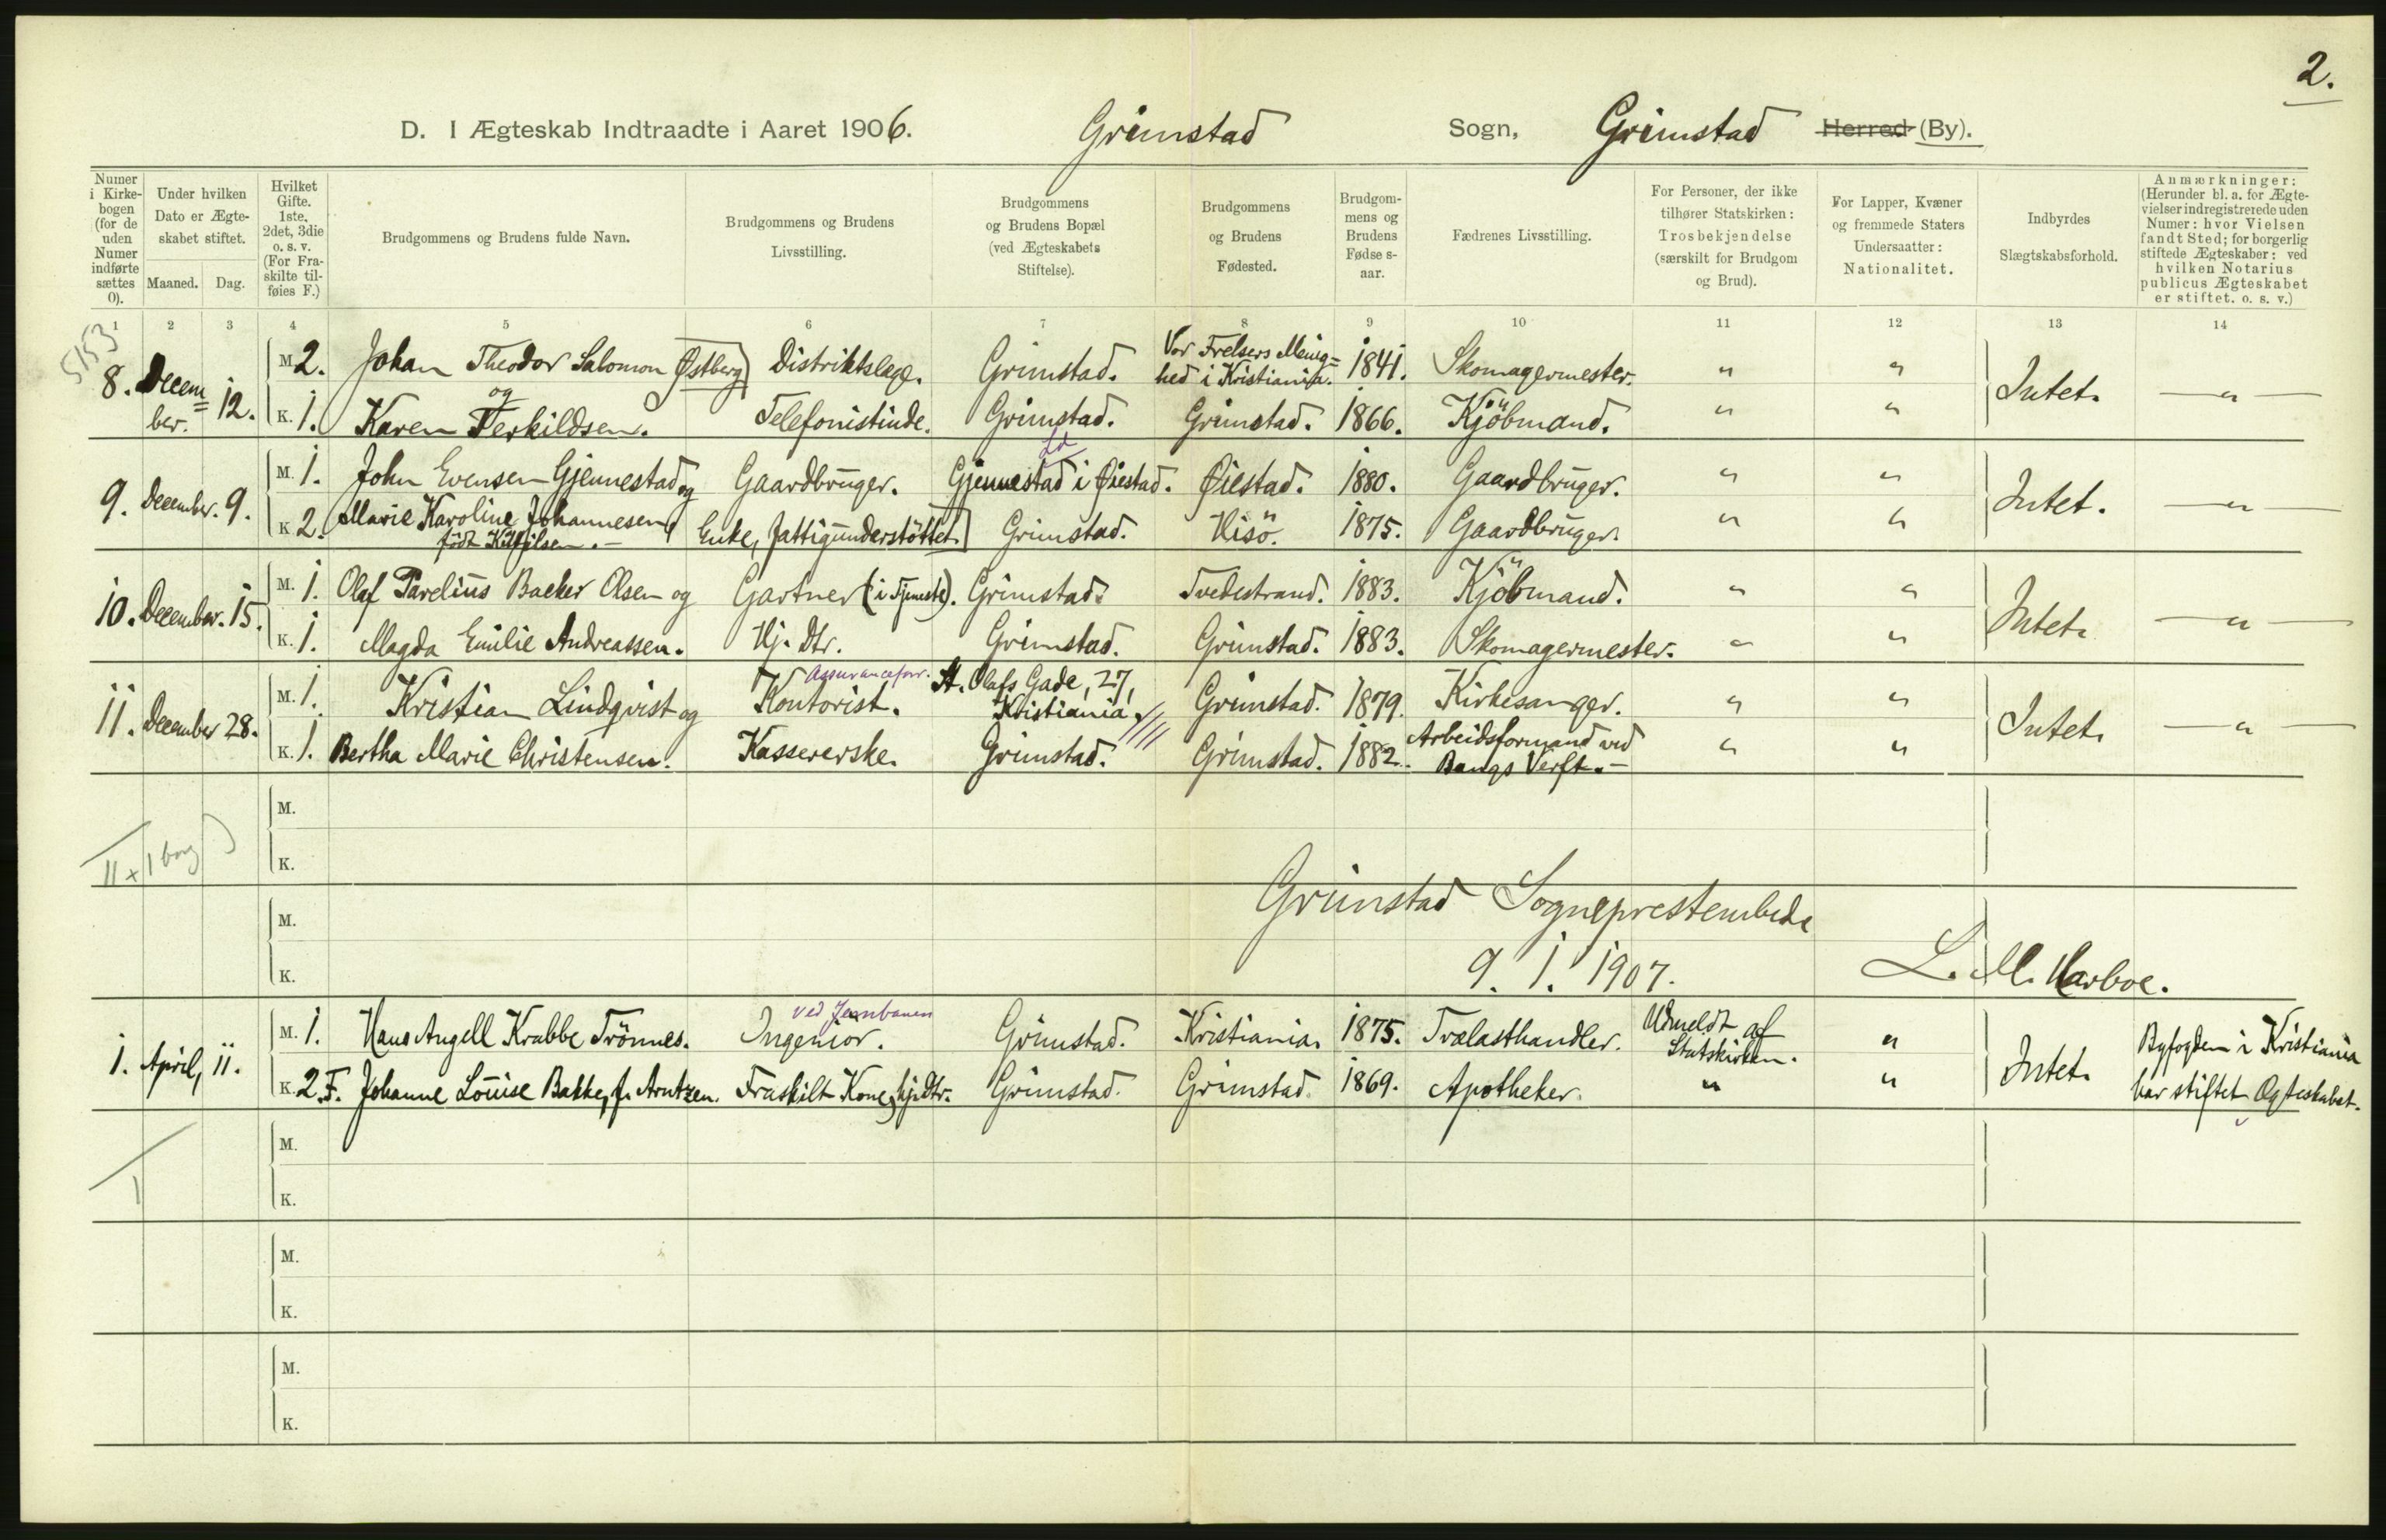 2.
D. I Ægteskab Indtraadte i Aaret 1906. Grimstad Sogn, Grimstad Herred (By).
Numer i Kirkebogen (for de uden Numer indførte sættes 0).
Under hvilken Dato er Ægteskabet stiftet.
Maaned. Dag.
Hvilket Gifte. 1ste, 2det, 3die o. s. v. (For Fraskilte tilføies F.)
Brudgommens og Brudens fulde Navn.
Brudgommens og Brudens Livsstilling.
Brudgommens og Brudens Bopæl (ved Ægteskabets Stiftelse).
Brudgommens og Brudens Fødested.
Brudgommens og Brudens Fødselsaar.
Fædrenes Livsstilling.
For Personer, der ikke tilhører Statskirken: Trosbekjendelse (særskilt for Brudgom og Brud).
For Lapper, Kvæner og fremmede Staters Undersaatter: Nationalitet.
Indbyrdes Slægtskabsforhold.
Anmærkninger: (Herunder bl. a. for Ægtevielser indregistrerede uden Numer: hvor Vielsen fandt Sted; for borgerlig stiftede Ægteskaber: ved hvilken Notarius publicus Ægteskabet er stiftet. o. s. v.)
1 2 3 4 5 6 7 8 9 10 11 12 13 14
5153
8. December. 12.
M 2. Johan Theodor Salomon Østberg og Distriktslæge. Grimstad. Vor Frelsers Menighed i Kristiania. 1841. Skomagermester. " " Intet. — " —
K. 1. Karen Terkildsen. Telefonistinde. Grimstad. Grimstad. 1866. Kjöbmand. " "
9. December. 9.
M. 1. John Evensen Gjennestad og Gaardbruger. Gjennestad i Øiestad. Ld Øiestad. 1880. Gaardbruger. " " Intet. — " —
K 2. Marie Karoline Johannesen, född Enke, Fattigunderstöttet. Grimstad. Hisö. 1875. Gaardbruger. " "
10. December. 15.
M. 1. Olaf Parelius Backer Olsen og Gartner (i Tjeneste). Grimstad. Tvedestrand. 1883. Kjöbmand. " " Intet. — " —
K. 1. Magda Emilie Andreassen. Hj. Dtr. Grimstad. Grimstad. 1883. Skomagermester. " "
11. December 28.
M. 1. Kristian Lindqvist og Kontorist. Assuranceforr. St. Olafs Gade, 27, Kristiania. Grimstad. 1879. Kirkesanger. " " Intet. — " —
K. 1. Bertha Marie Christensen. Kassererske. Grimstad. Grimstad. 1882. Arbeidsformand ved Bangs Verft. — " "
M.
K.
11 + 1 borg
M.
K.
Grimstad Sogneprestembede
9. 1. 1907. L. M. Harboe.
1. April, 11.
M. 1. Hans Angell Krabbe Trönnes. Ingeniör. ved Jernbanen Grimstad. Kristiania. 1875. Trælasthandler. Udmeldt af Statskirken. " Intet. Byfogden i Kristiania har stiftet Ægteskabet.
K. 2. F. Johanne Louise Bakke, f. Arntzen. Fraskilt Kone, hj. Dtr. Grimstad. Grimstad. 1869. Apotheker. " "
M.
K.
1
M.
K.
M.
K.